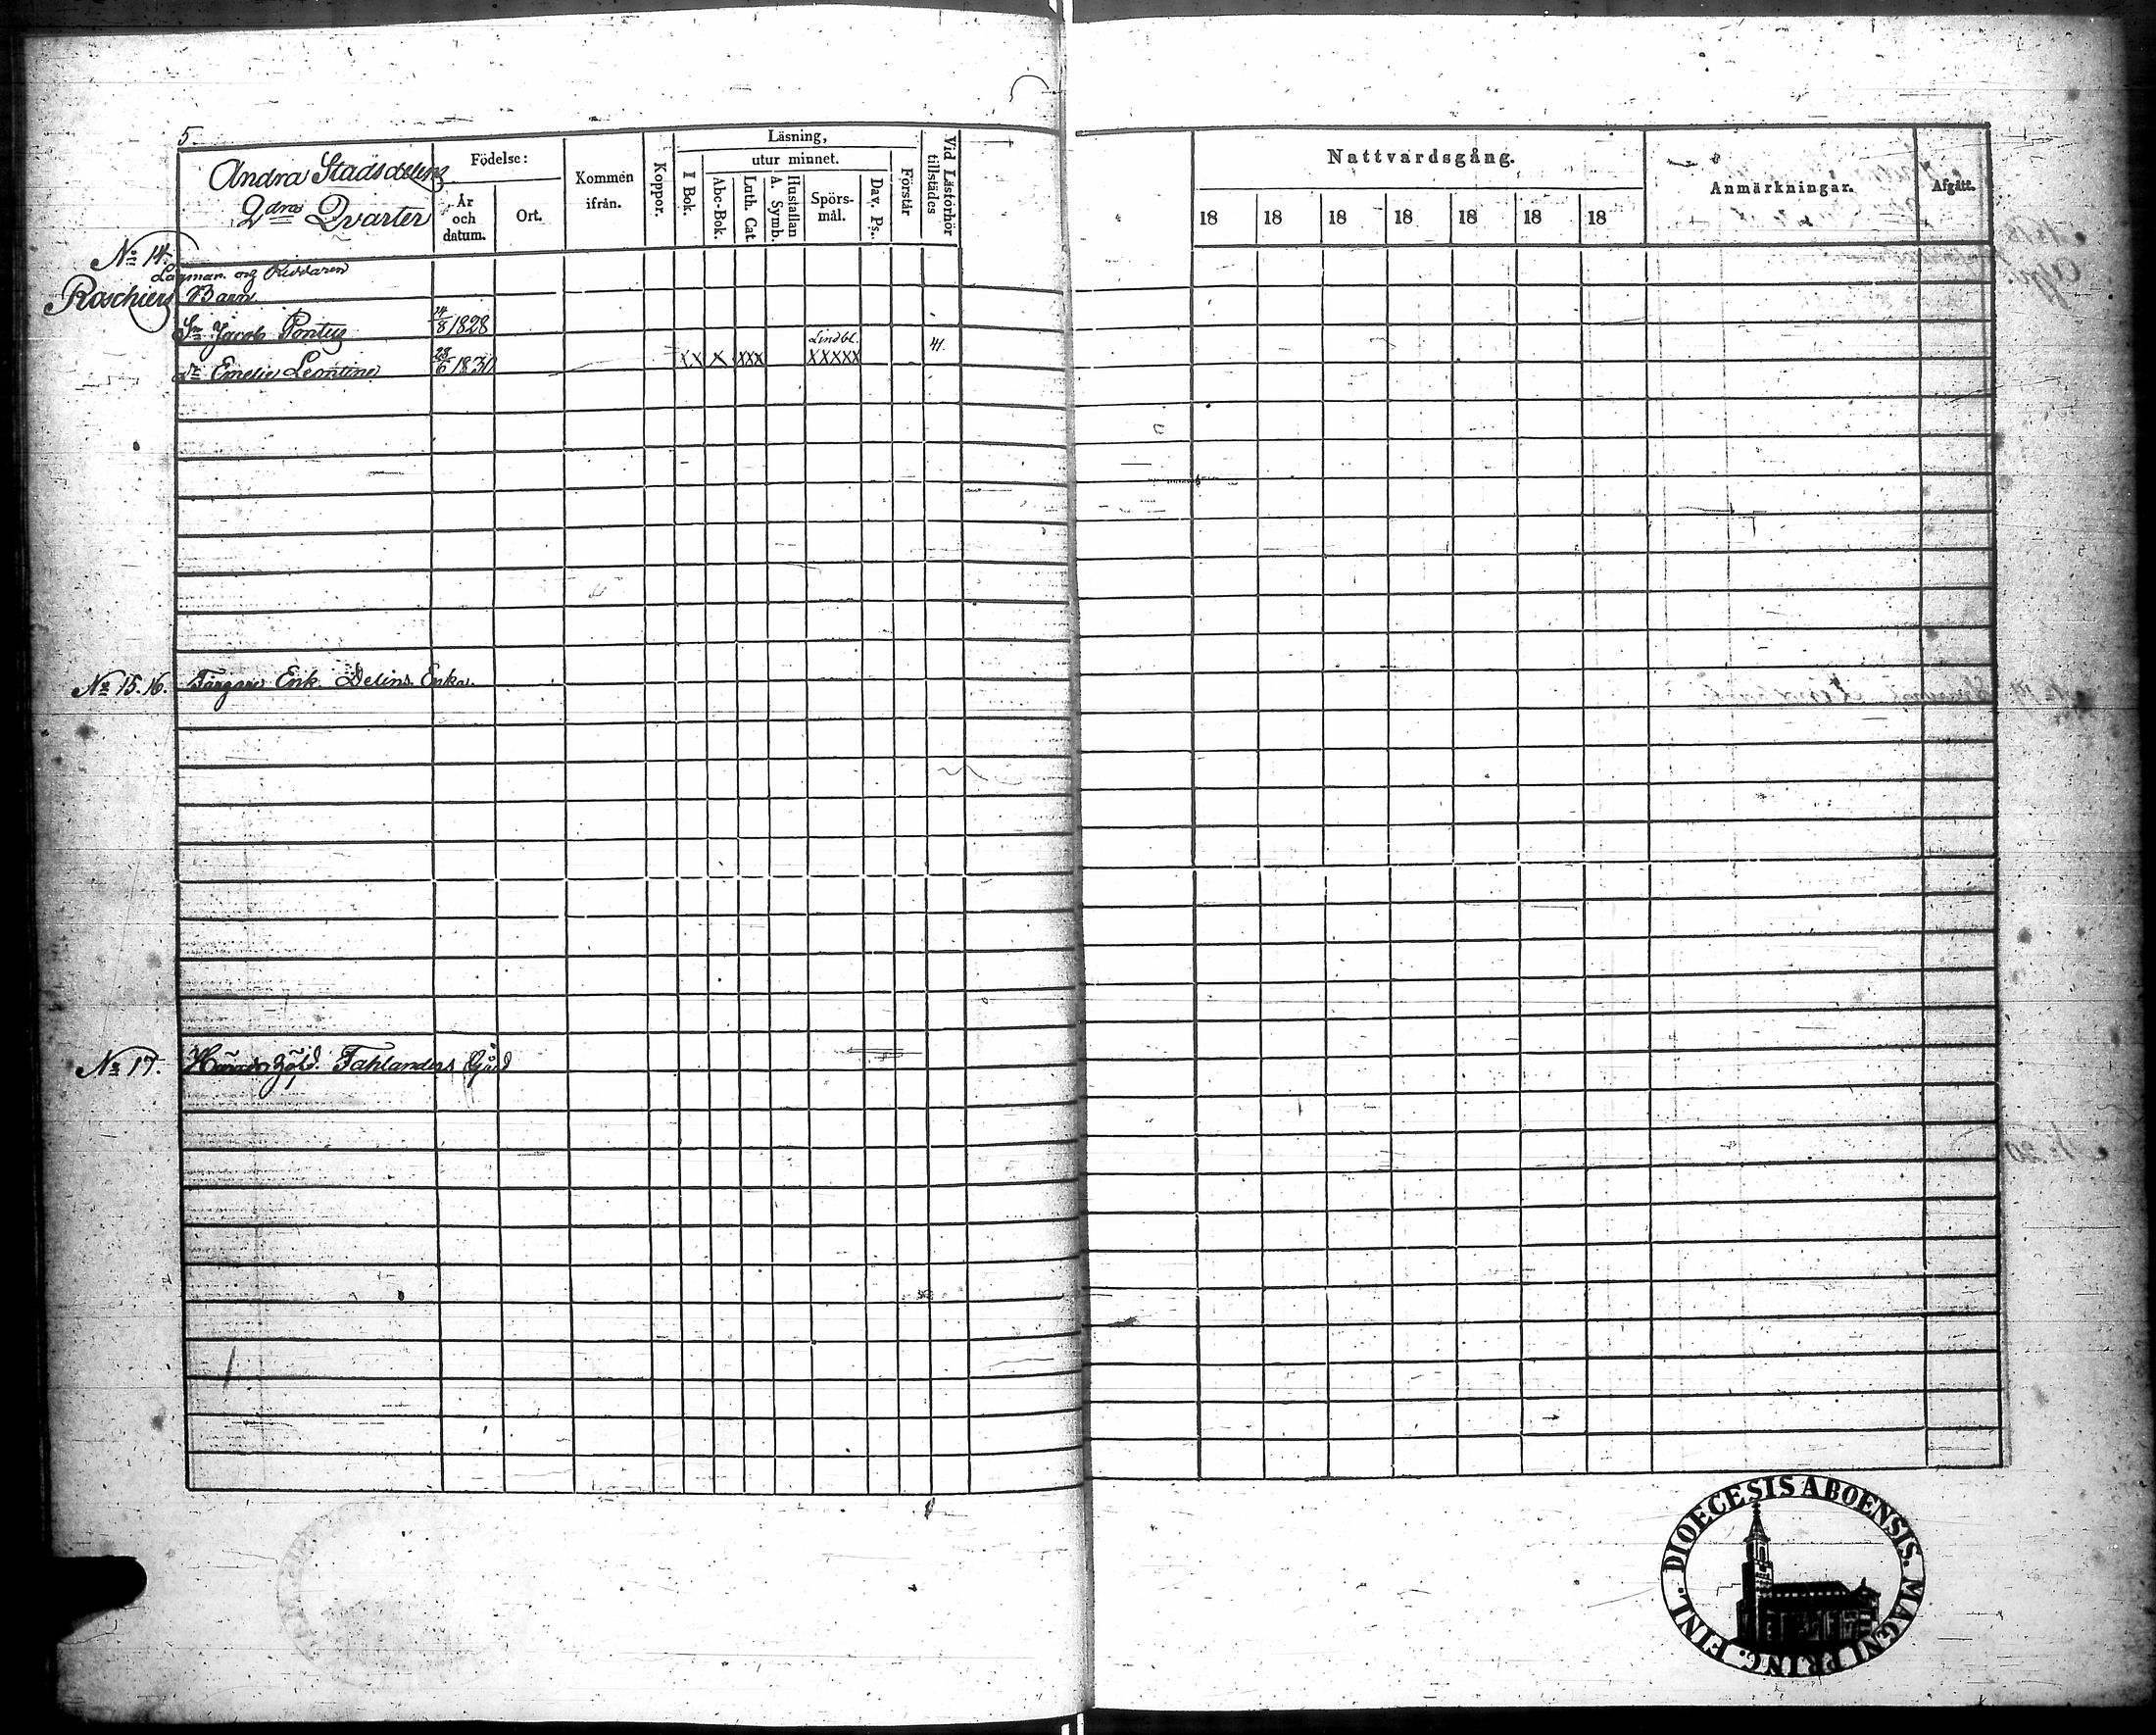 5.
Andra Stadsdelens
2dra Qvarter
Födelse:
År
och
datum.
Ort.
Kommen
ifrån.
Koppor.
Läsning,
I Bok.
utur minnet.
Abc-Bok.
Luth. Cat.
Hustaflan
A. Symb.
Spörs-
mål.
Dav. Ps.
Förstår
Vid Läsförhör
tillstädes
Nattvardsgång.
18 18 18 18 18 18 18
Anmärkningar.
Afgått.
No 14.
Lagman. og Riddaren
Roschiers Barn
Sn Jacob Pontus 14/8 1828
Dr Emelie Leontine 28/6 1830 XX X XXX Lindbl. XXXXX 41.
No 15. 16. Färgare Enk. Delins Enka.
No 17. Härads Höfd. Fahlanders Gård
DIOECESIS ABOENSIS. MAGNI PRINC. FINL.